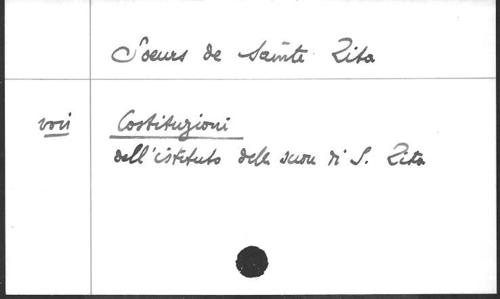 Soeurs de Sainte Zita
voir Costituzioni
dell'istituto delle suore di S. Zita